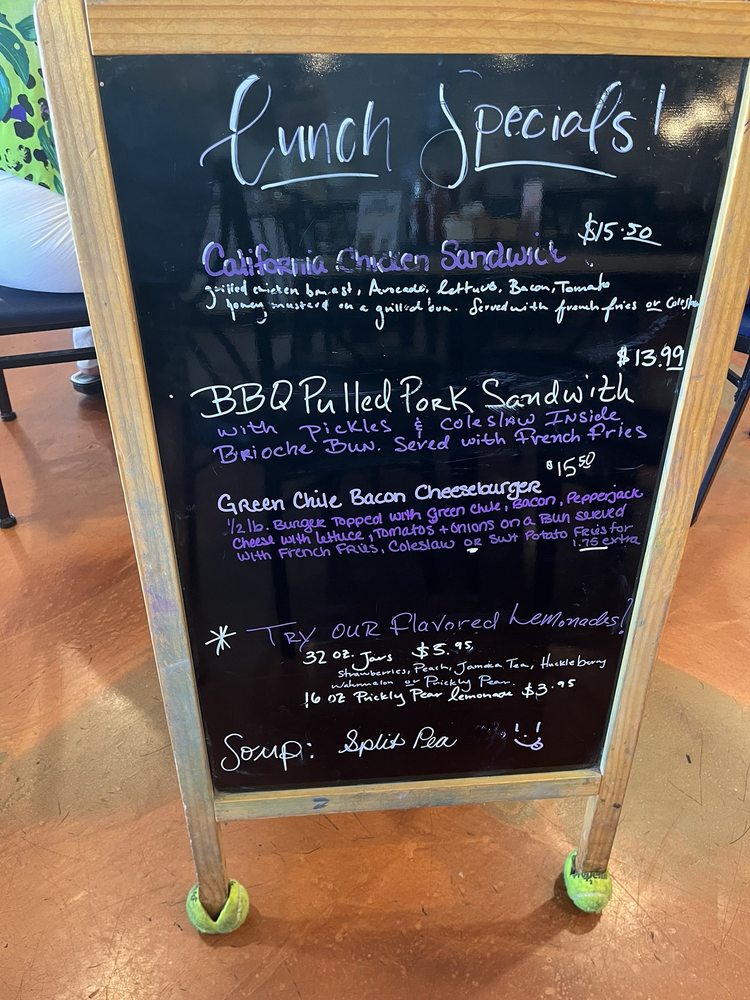 Lunch Specials!
$15.50
California Chicken Sandwich
grilled chicken breast, Avocado, lettuce, Bacon, Tomato
honey mustard on a grilled bun. Served with french fries or Coleslaw
$13.99
BBQ Pulled Pork Sandwith
with Pickles & Coleslaw Inside
Brioche Bun. Served with French fries
$15.50
Green Chile Bacon Cheeseburger
1/2 lb. Burger Topped with Green chile, Bacon, Pepperjack
Cheese with lettuce, Tomatos + onions on a Bun served
with French Fries, Coleslaw or Swt Potato Fries for
1.75 extra
* Try our Flavored Lemonades!
32 oz. Jars $5.95
Strawberries, Peach, Jamaica Tea, Huckleberry
Watermelon or Prickly Pear.
16 oz Prickly Pear lemonade $3.95
Soup: Split Pea